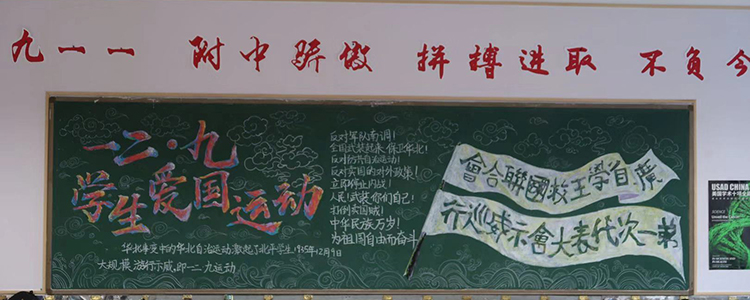 九一一 附中骄傲 拼搏进取 不负今
一二·九
学生爱国运动
华北事变中的华北自治运动激起了北平学生1935年12月9日
大规模游行示威,即一二·九运动
反对军队南调!
全国武装起来保卫华北!
反对防共自治运动!
反对卖国的对外政策!
立即停止内战!
人民武装你们自己!
打倒卖国贼!
中华民族万岁!
为祖国自由而奋斗
廣首學王救國聯合會
第一次代表大會示威巡行
USAD CHINA
美国学术十项全
SCIENCE